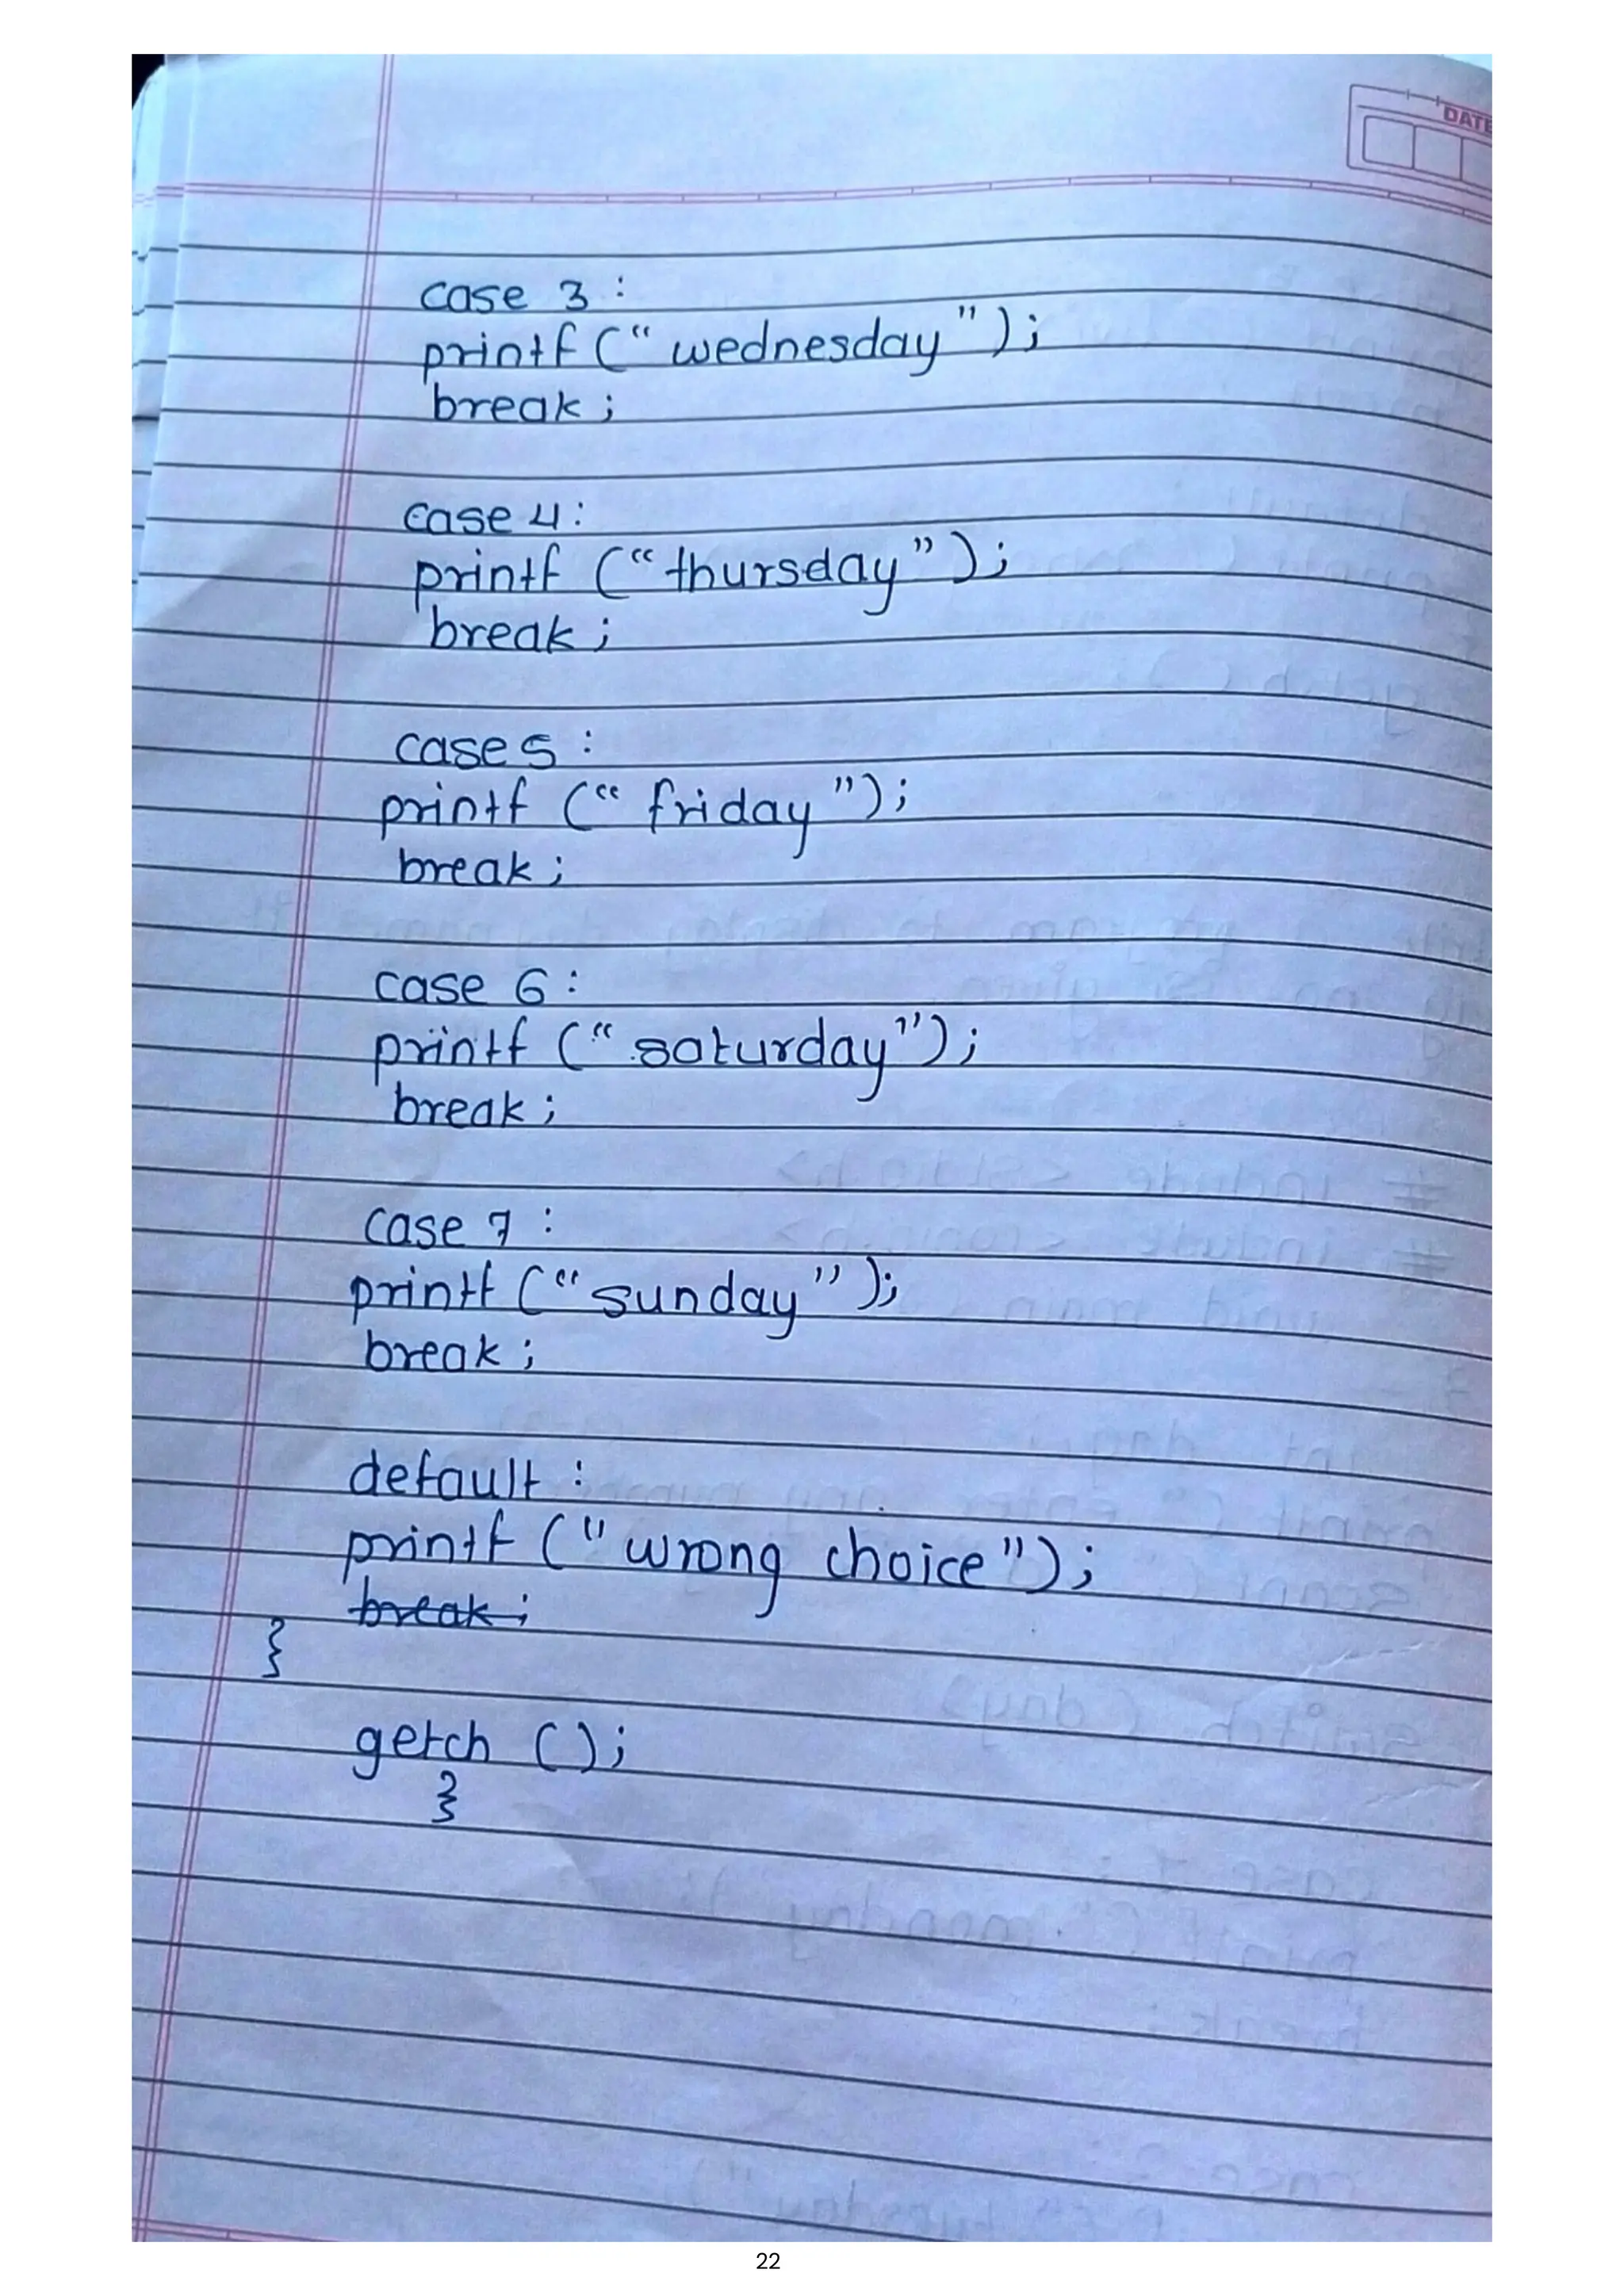 DATE
case 3 :
printf (“ wednesday ”) ;
break ;
case 4 :
printf (“ thursday ”) ;
break ;
case 5 :
printf (“ friday ”) ;
break ;
case 6 :
printf (“ saturday ”) ;
break ;
case 7 :
printf (“ sunday ”) ;
break ;
default :
printf (" wrong choice ") ;
break ;
}
getch () ;
}
22